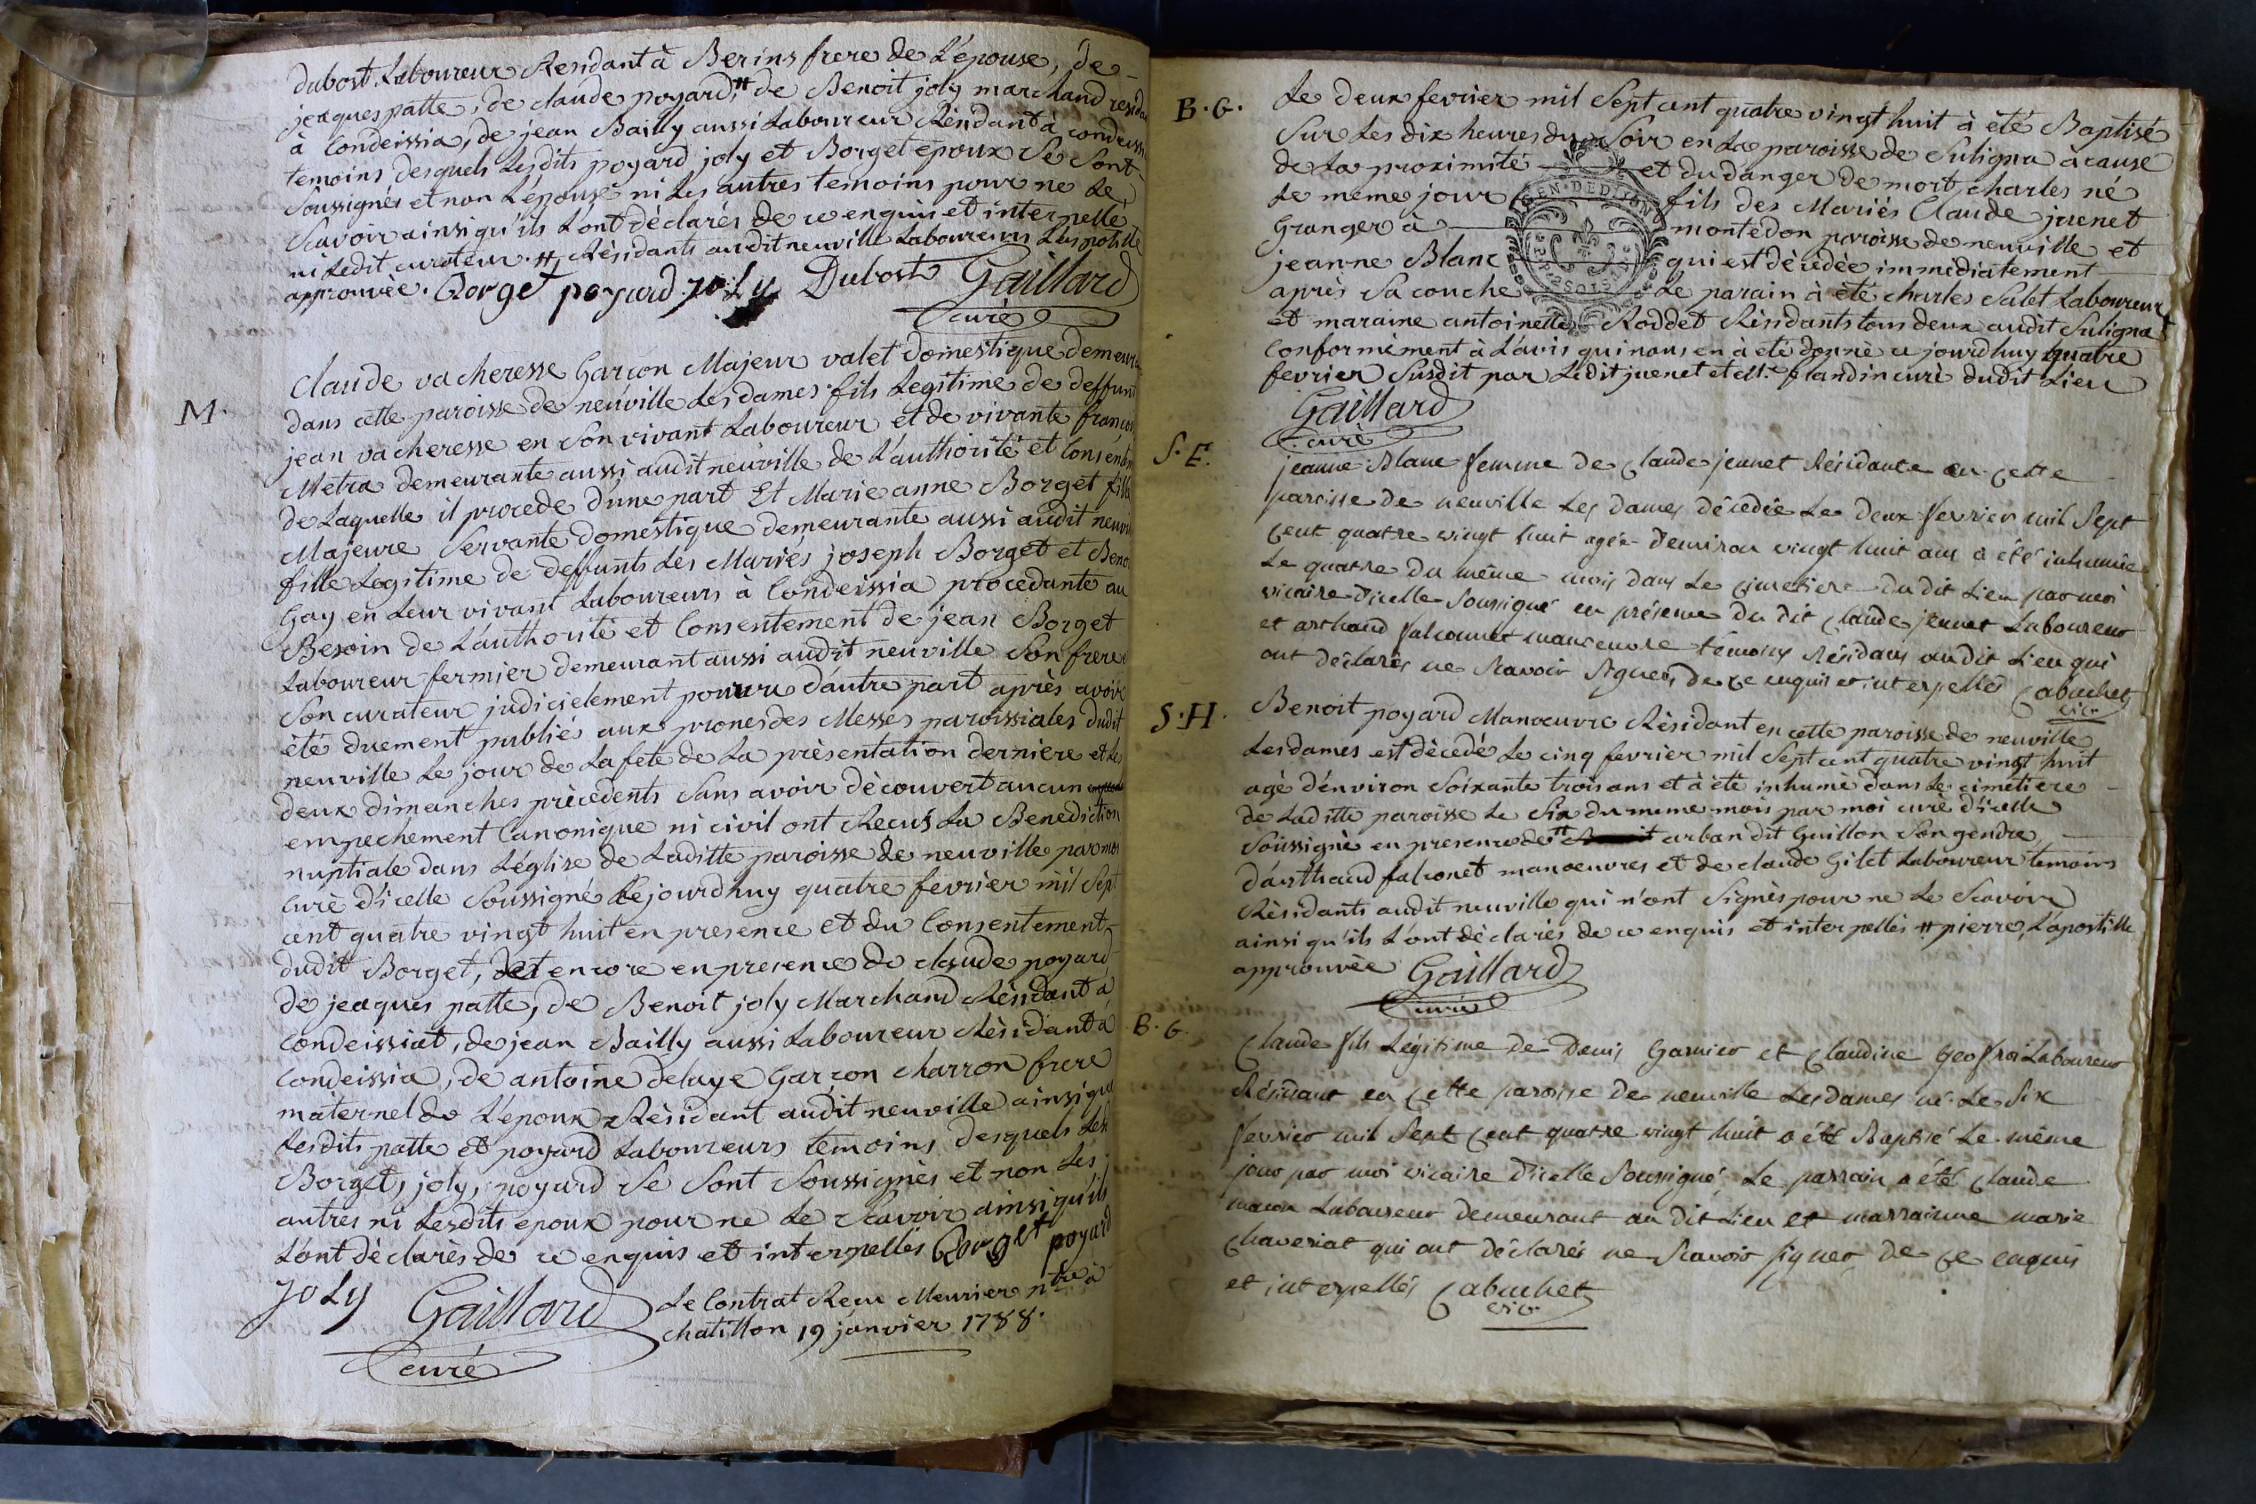 dubost Laboureur Résidant à Berins frere de L'épouse, de
jeaques patte, de claude poyard,# de Benoit joly marchand residan
à Condeissia, de jean Bailly aussi Laboureur Résidant à condeissi
temoins desquels Lesdits poyard joly et Borget epoux se sont
soussignés et non L'épouse ni Les autres temoins pour ne Le
scavoir ainsi qu'ils L'ont déclarés de ce enquis et interpellé
ni Ledit curateur. # Résidants audit neuville Laboureurs L'apostille
approuvée. Borget poyard joLy Dubost Gaillard
curé
M.
Claude vacheresse Garcon Majeur valet domestique demeur
dans cette paroisse de neuville Les dames fils Legitime de deffunt
jean vacheresse en son vivant Laboureur et de vivante francoi
Metra demeurante aussi audit neuville de L'authorité et Consente
de Laquelle il procede d'une part Et Marie anne Borget fille
Majeure Servante domestique demeurante aussi audit neuvi
fille Legitime de deffunts Les Mariés joseph Borget et Beno
Gay en Leur vivant Laboureurs à Condeissia procedante au
Besoin de L'authorité et Consentement de jean Borget
Laboureur fermier demeurant aussi audit neuville son frere
son curateur judicielement pourvu d'autre part après avoir
été duement publié aux prones des Messes paroissiales dudit
neuville Le jour de La fete de La présentation derniere et Les
deux dimanches précedents sans avoir découvert aucun
empechement Canonique ni civil ont Recus La Benediction
nuptiale dans L'église de Laditte paroisse de neuville par moi
curé d'icelle soussigné Cejourdhuy quatre fevrier mil sept
cent quatre vingt huit en presence et du Consentement
dudit Borget, et encore en presence de claude poyard
de jeaques patte, de Benoit joly Marchand Résidant à
Condeissiat, de jean Bailly aussi Laboureur Résidant à
Condeissia, de antoine delaye Garcon charron frere
maternel de L'epoux Résidant audit neuville ainsi que
Lesdits patte et poyard Laboureurs temoins desquels Lesd
Borget, joly, poyard se sont soussignés et non Les
autres ni Lesdits epoux pour ne Le scavoir ainsi qu'ils
L'ont déclarés de ce enquis et interpellés Borget poyard
joLy Gaillard
curé
Le Contrat Recu Meunier ntre à
chatillon 19 janvier 1788.
B.G.
Le deux fevrier mil sept cent quatre vingt huit à été Baptisé
sur Les dix heures du soir en La paroisse de Suligna à cause
de La proximité et du danger de mort charles né
Le meme jour fils des Mariés Claude juenet
Granger à montedon paroisse de neuville et
jeanne Blanc qui est décedée immédiatement
après sa couche Le parain à été charles Salet Laboureur
et maraine antoinette Roddet Résidants tous deux audit Suligna
Conformément à L'avis qui nous en à été donné ce jourd'huy quatre
fevrier susdit par Ledit juenet et Mre. flandin curé dudit Lieu
GEN. DE DIJON
Gaillard
curé
S.E.
jeanne Blanc femme de Claude jeunet Résidante en cette
paroisse de neuville Les dames décedée Le deux fevrier mil sept
Cent quatre vingt huit agée d'environ vingt huit ans a été inhumée
Le quatre du même mois dans Le Cimetiere du dit Lieu par moi
vicaire d'icelle soussigné en présence du dit Claude jeunet Laboureur
et arthaud falconnet manoeuvre témoins Résidans audit Lieu qui
ont déclarés ne scavoir signer, de ce enquis et interpellés Cabuchet
vic.
S.H.
Benoit poyard Manoeuvre Résidant en cette paroisse de neuville
Les dames est décedé Le cinq fevrier mil sept cent quatre vingt huit
agé d'environ soixante trois ans et à été inhumé dans Le cimetiere
de Laditte paroisse Le six du meme mois par moi curé d'icelle
soussigné en presence de # arban dit Guillon son gendre
d'arthaud falconet manoeuvres et de claude Gilet Laboureur temoins
Résidants audit neuville qui n'ont signés pour ne Le scavoir
ainsi qu'ils L'ont déclarés de ce enquis et interpellés # pierre, L'apostille
approuvée Gaillard
curé
B.G.
Claude fils Légitime de Denis Garnier et Claudine Geofrai Laboureur
Résidant en Cette paroisse de neuville Les dames né Le six
fevrier mil sept Cent quatre vingt huit a été Baptisé Le même
jour par moi vicaire d'icelle soussigné, Le parrain a été Claude
macon Laboureur demeurant au dit Lieu et marrainne marie
Chaveriat qui ont déclarés ne scavoir signer, de ce enquis
et interpellés Cabuchet
vic.